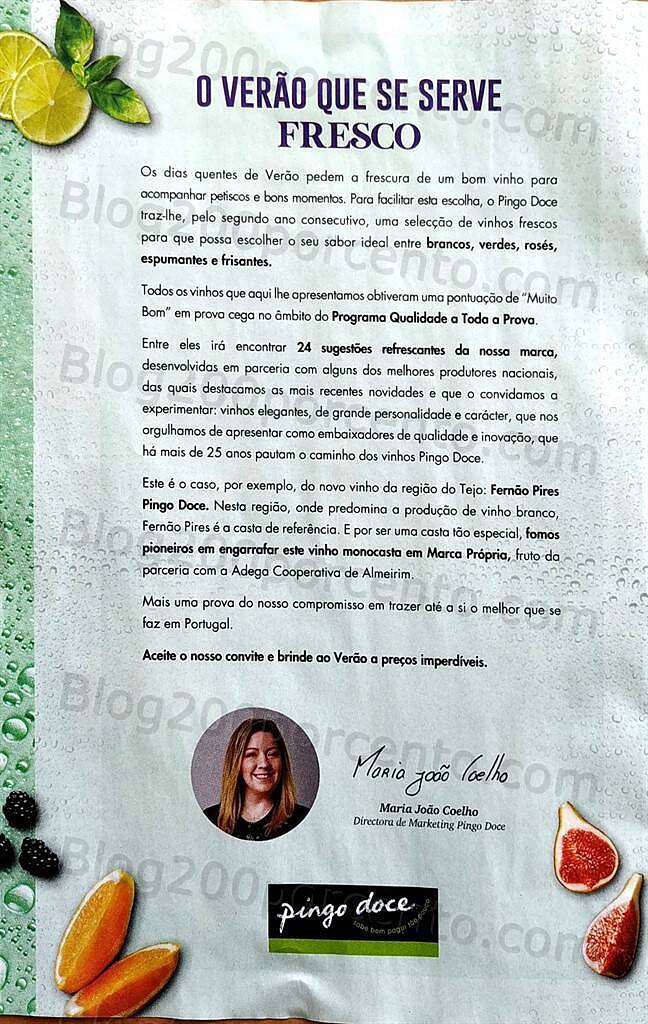 O VERÃO QUE SE SERVE
FRESCO
Os dias quentes de Verão pedem a frescura de um bom vinho para
acompanhar petiscos e bons momentos. Para facilitar esta escolha, o Pingo Doce
traz-lhe, pelo segundo ano consecutivo, uma selecção de vinhos frescos
para que possa escolher o seu sabor ideal entre brancos, verdes, rosés,
espumantes e frisantes.
Todos os vinhos que aqui lhe apresentamos obtiveram uma pontuação de “Muito
Bom” em prova cega no âmbito do Programa Qualidade a Toda a Prova.
Entre eles irá encontrar 24 sugestões refrescantes da nossa marca,
desenvolvidas em parceria com alguns dos melhores produtores nacionais,
das quais destacamos as mais recentes novidades e que o convidamos a
experimentar: vinhos elegantes, de grande personalidade e carácter, que nos
orgulhamos de apresentar como embaixadores de qualidade e inovação, que
há mais de 25 anos pautam o caminho dos vinhos Pingo Doce.
Este é o caso, por exemplo, do novo vinho da região do Tejo: Fernão Pires
Pingo Doce. Nesta região, onde predomina a produção de vinho branco,
Fernão Pires é a casta de referência. E por ser uma casta tão especial, fomos
pioneiros em engarrafar este vinho monocasta em Marca Própria, fruto da
parceria com a Adega Cooperativa de Almeirim.
Mais uma prova do nosso compromisso em trazer até a si o melhor que se
faz em Portugal.
Aceite o nosso convite e brinde ao Verão a preços imperdíveis.
Maria João Coelho
Maria João Coelho
Directora de Marketing Pingo Doce
pingo doce
sabe bem pagar tão pouco
Blog200porcento.com
Blog200porcento.com
Blog200porcento.com
Blog200porcento.com
Blog200porcento.com
Blog200porcento.com